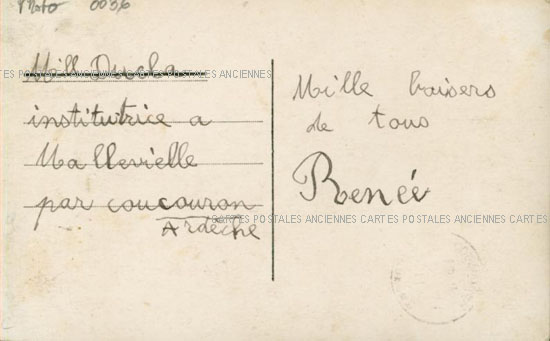 Photo 0036
Mlle
institutrice a
Mallevielle
par coucouron
Ardèche
Mille baisers
de tous
Renée
CARTES POSTALES ANCIENNES CARTES POSTALES ANCIENNES
CARTES POSTALES ANCIENNES CARTES POSTALES ANCIENNES CARTES